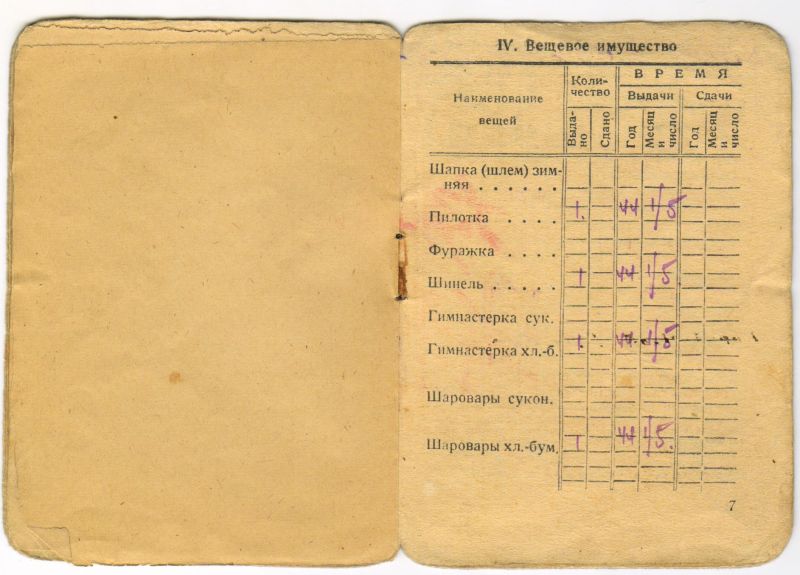 IV. Вещевое имущество
Наименование
вещей
Коли-
чество
ВРЕМЯ
Выдачи
Сдачи
Выда-
но
Сдано
Год
Месяц
и
число
Год
Месяц
и
число
Шапка (шлем) зим-
няя . . . . . .
Пилотка . . . . 1. 44 1/5
Фуражка . . . .
Шинель . . . . . 1 44 1/5.
Гимнастерка сук.
Гимнастерка хл.-б. 1. 44 1/5
Шаровары сукон.
Шаровары хл.-бум. 1 44 1/5.
7